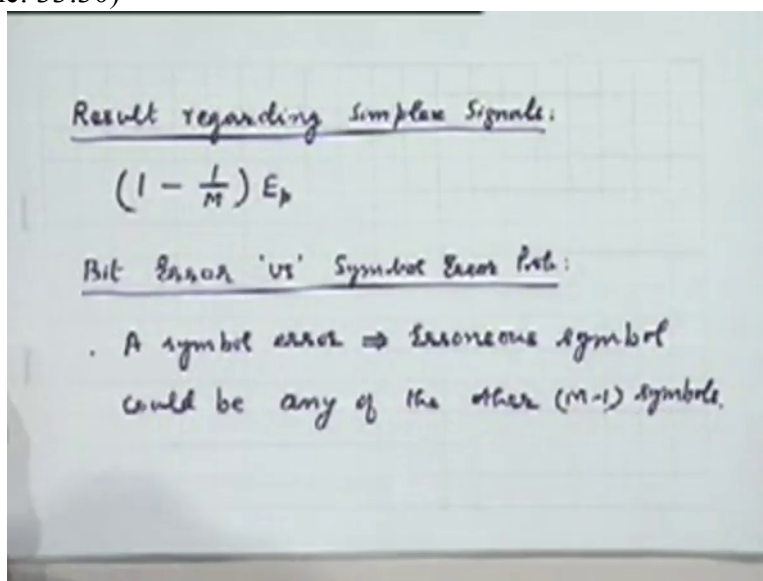 33:30)
Result regarding Simplex Signals:
(1 - 1/M) Ep
Bit Error 'vs' Symbol Error Prob:
. A symbol error ⇒ Erroneous symbol
could be any of the other (M-1) symbols.